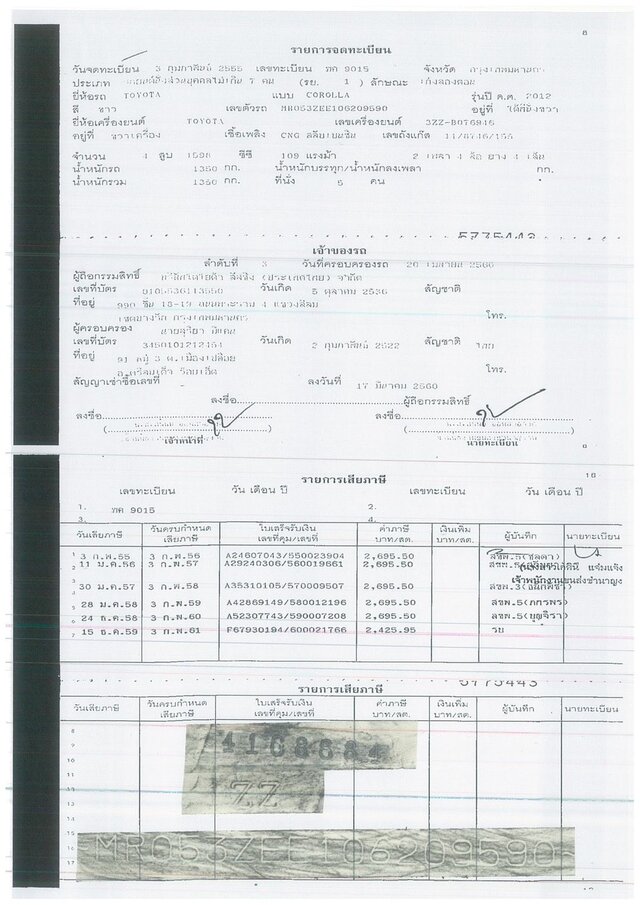 8
รายการจดทะเบียน
วันจดทะเบียน 3 กุมภาพันธ์ 2555 เลขทะเบียน ฆค 9015 จังหวัด กรุงเทพมหานคร
ประเภท รถยนต์นั่งส่วนบุคคลไม่เกิน 7 คน (รย. 1 ) ลักษณะ เก๋งสองตอน
ยี่ห้อรถ TOYOTA แบบ COROLLA รุ่นปี ค.ศ. 2012
สี ขาว เลขตัวรถ MR053ZEE106209590 อยู่ที่
ยี่ห้อเครื่องยนต์ TOYOTA เลขเครื่องยนต์ 3ZZ-B076946
อยู่ที่ ขวาเครื่อง เชื้อเพลิง CNG สลับเบนซิน เลขถังแก๊ส 11/8746/155
จำนวน 4 สูบ 1598 ซีซี 109 แรงม้า 2 เพลา 4 ล้อ ยาง 4 เส้น
น้ำหนักรถ 1350 กก. น้ำหนักบรรทุก/น้ำหนักลงเพลา กก.
น้ำหนักรวม 1350 กก. ที่นั่ง 5 คน
5775443
เจ้าของรถ
ลำดับที่ 3 วันที่ครอบครองรถ 20 เมษายน 2560
ผู้ถือกรรมสิทธิ์ บริษัทโตโยต้า ลีสซิ่ง (ประเทศไทย) จำกัด
เลขที่บัตร 0105536113550 วันเกิด 5 ตุลาคม 2536 สัญชาติ
ที่อยู่ 990 ชั้น 18-19 ถนนพระราม 4 แขวงสีลม
เขตบางรัก กรุงเทพมหานคร โทร.
ผู้ครอบครอง
เลขที่บัตร 3450101212454 วันเกิด 2 กุมภาพันธ์ 2522 สัญชาติ ไทย
ที่อยู่ 91 หมู่ 3 ต.เมืองเปลือย
อ.ศรีสมเด็จ ร้อยเอ็ด โทร.
สัญญาเช่าซื้อเลขที่ ลงวันที่ 17 มีนาคม 2560
ลงชื่อ ผู้ถือกรรมสิทธิ์
ลงชื่อ ลงชื่อ
เจ้าหน้าที่ นายทะเบียน
รายการเสียภาษี
เลขทะเบียน วัน เดือน ปี เลขทะเบียน วัน เดือน ปี
1. ฆค 9015 2.
3. 4.
วันเสียภาษี วันครบกำหนดเสียภาษี ใบเสร็จรับเงิน เลขที่คุม/เลขที่ ค่าภาษี บาท/สต. เงินเพิ่ม บาท/สต. ผู้บันทึก นายทะเบียน
1 3 ก.พ.55 3 ก.พ.56 A24607043/550023904 2,695.50
2 11 ม.ค.56 3 ก.พ.57 A29240306/560019661 2,695.50
3 30 ม.ค.57 3 ก.พ.58 A35310105/570009507 2,695.50
เจ้าพนักงานขนส่งชำนาญง
28 ม.ค.58 3 ก.พ.59 A42869149/580012196 2,695.50 ลขพ.5(ภภรพร)
24 ธ.ค.58 3 ก.พ.60 A52307743/590007208 2,695.50 ลขพ.5(บุญจิรา)
7 15 ธ.ค.59 3 ก.พ.61 F67930194/600021766 2,425.95 รย
5775443
รายการเสียภาษี
วันเสียภาษี วันครบกำหนดเสียภาษี ใบเสร็จรับเงิน เลขที่คุม/เลขที่ ค่าภาษี บาท/สต. เงินเพิ่ม บาท/สต. ผู้บันทึก นายทะเบียน
8
9
10
11
12
13
15
16
17
ZZ
MR053ZEE106209590